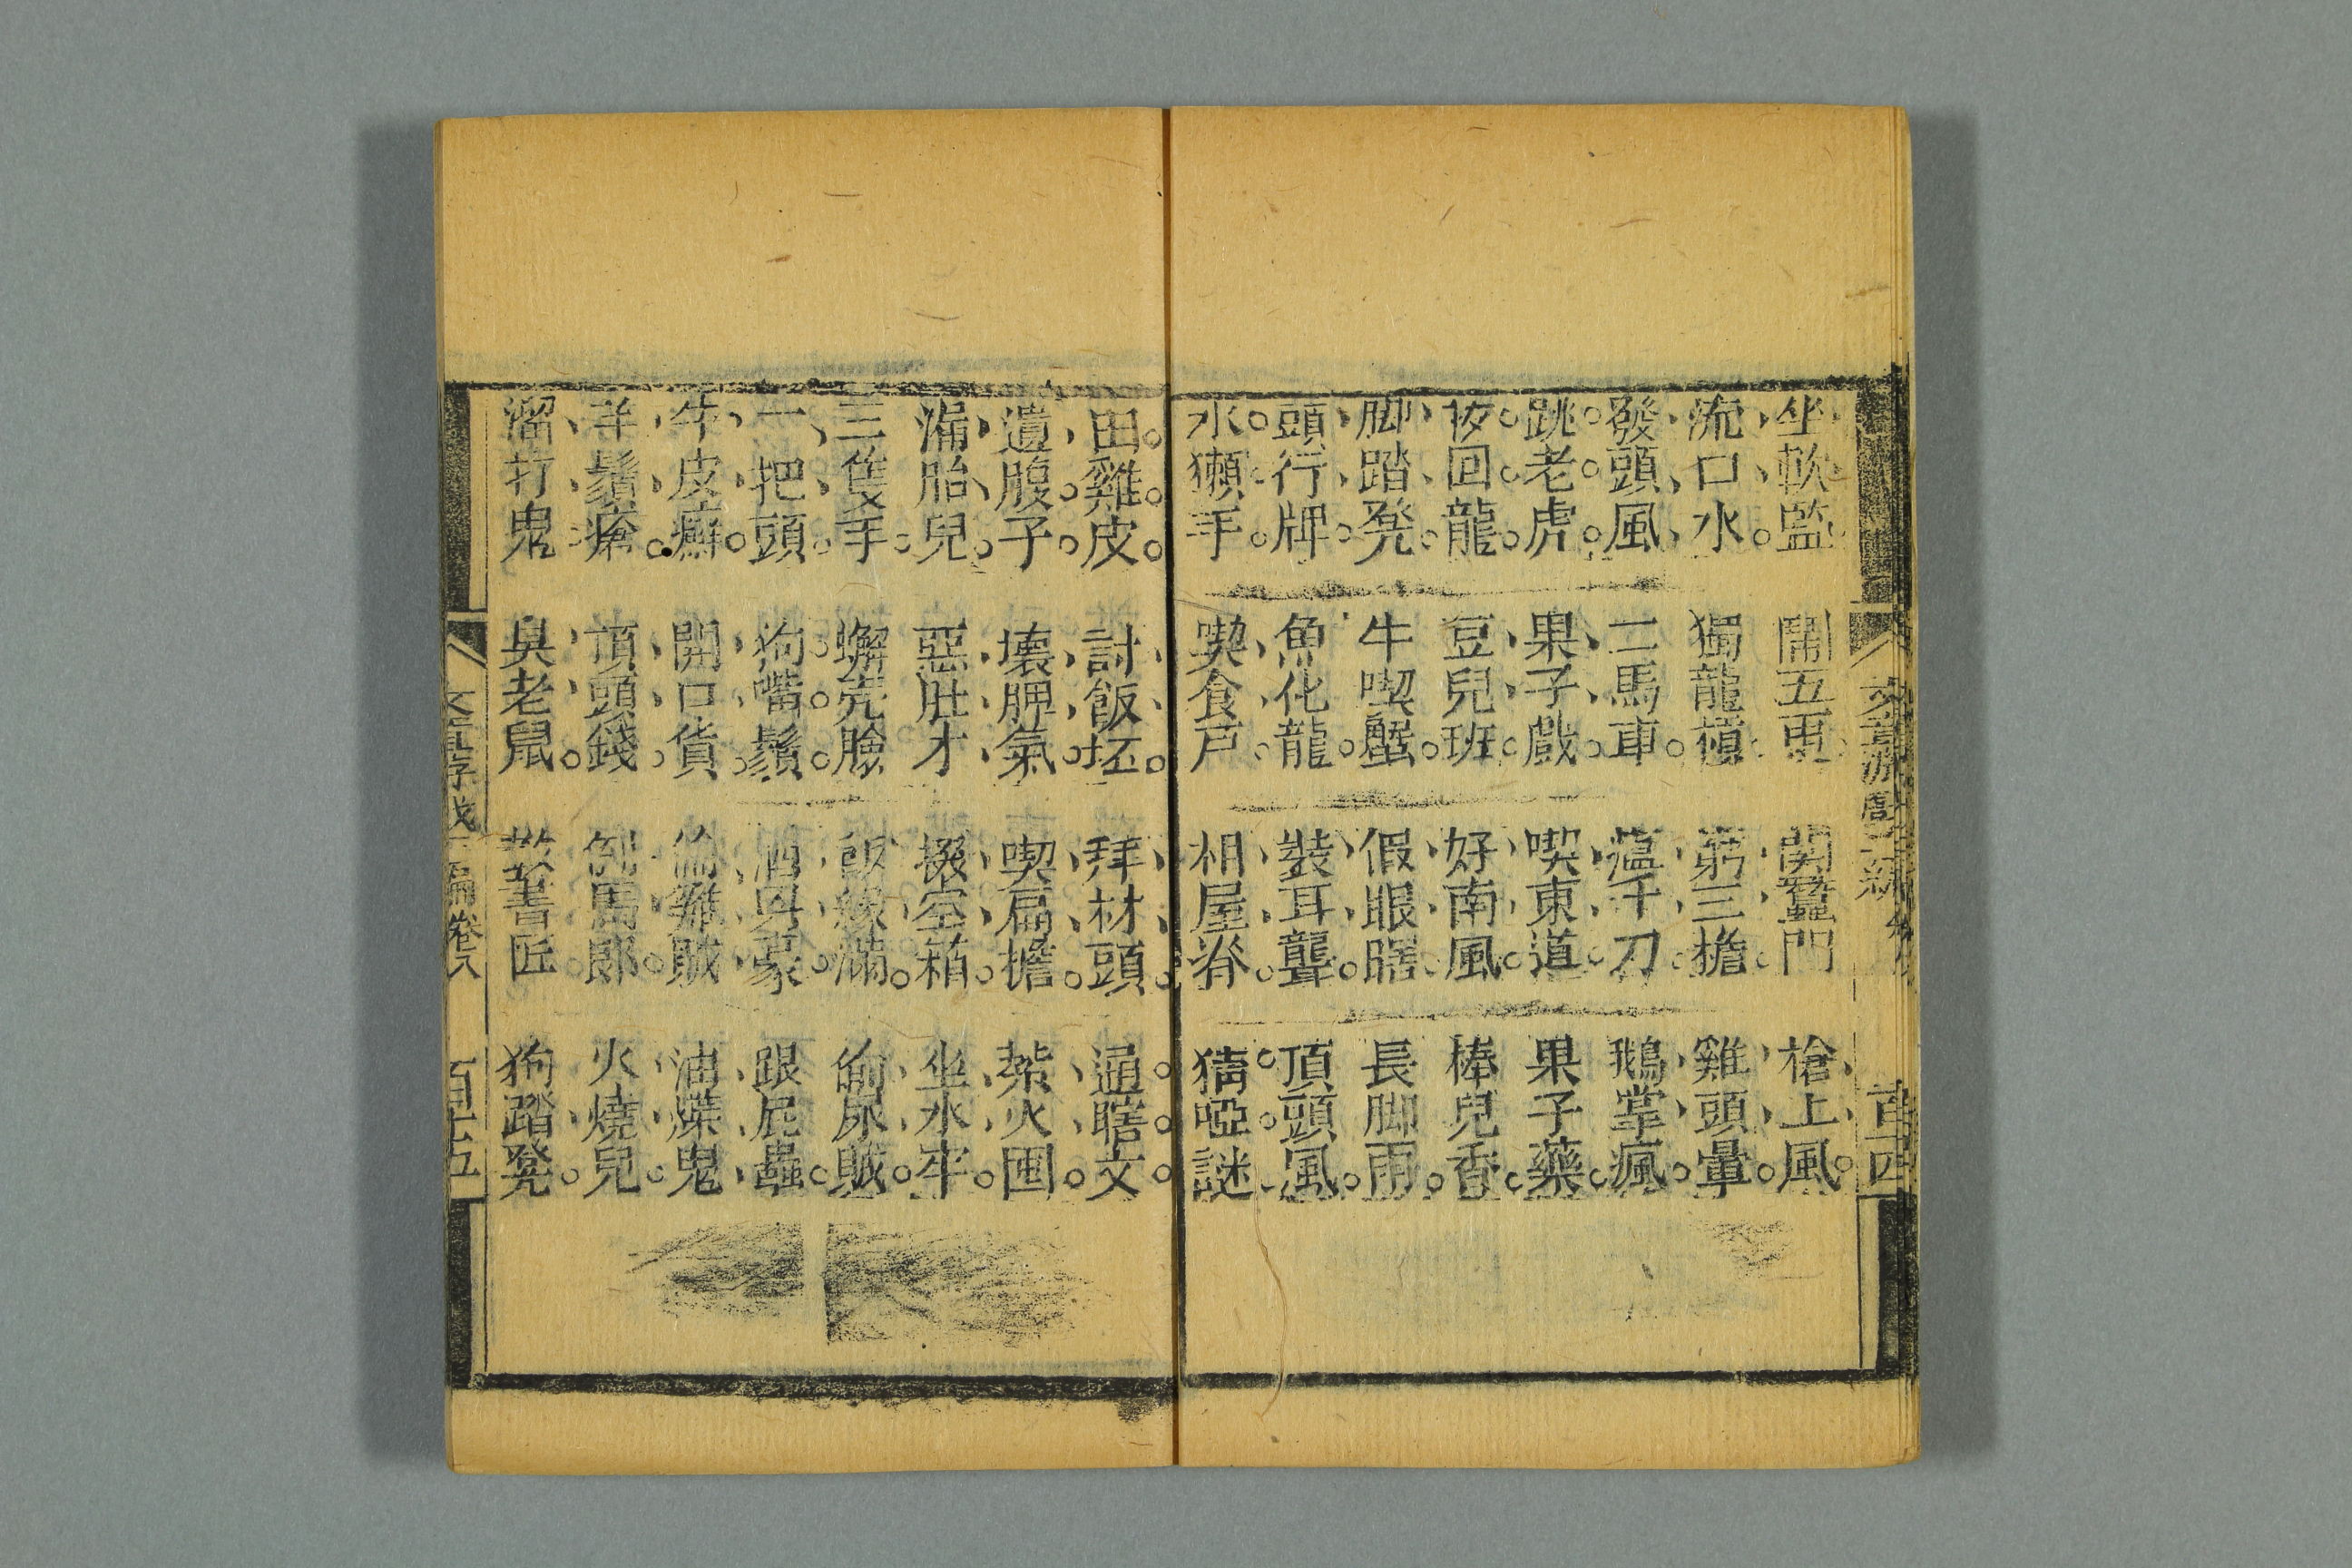 坐軟監 鬧五更 關蠶門 槍上風
流口水 獨龍槓 窮三擔 雞頭暈
發頭風 二馬車 瘟千刀 鵝掌瘋
跳老虎 果子戲 喫東道 果子藥
夜回龍 豆兒班 好南風 棒兒香
脚踏凳 牛喫蟹 假眼瞎 長脚雨
頭行牌 魚化龍 裝耳聾 頂頭風
水獺手 喫食戶 相屋脊 猜啞謎
百十四
田雞皮 討飯坯 拜材頭 通瞎文
遺腹子 壞脾氣 喫扁擔 架火囤
漏胎兒 惡肚才 掇空箱 坐水牢
三隻手 蠏壳臉 飯緣滿 偷尿賊
一把頭 狗嘴鬚 酒丹蒙 跟屁蟲
牛皮癬 開口貨 偷雞賊 油煠鬼
羊鬚瘡 頂頭錢 馬郎 火燒兒
溜打鬼 臭老鼠 教書匠 狗踏凳
文章游戲二編 卷八 百十五